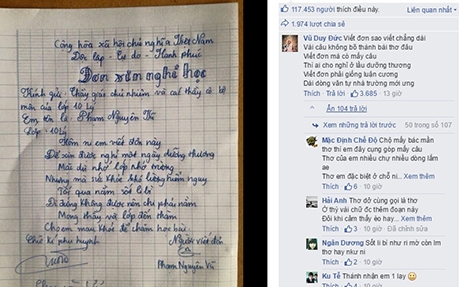 Cộng hòa xã hội chủ nghĩa Việt Nam
Độc lập - Tự do - Hạnh phúc
Đơn xin nghỉ học
Kính gửi: Thầy giáo chủ nhiệm và các thầy cô bộ
môn của lớp 10 Lý
Em tên là: Phạm Nguyên Vũ
Lớp: 10 Lý
Hôm nay em viết đơn này
Để xin được nghỉ một ngày dưỡng thương
Mặc dù nhớ lớp nhớ trường
Nhưng mà sức khỏe khó lường hiểm nguy
Tối qua nằm sốt li bì
Di chứng không được nên chi phải nằm
Mong thầy và lớp đến thăm
Cho em mau khỏe để chăm học bài.
Chữ kí phụ huynh
Người viết đơn
Vũ
Phạm Nguyên Vũ
117.453 người thích điều này.
Liên quan nhất
1.974 lượt chia sẻ
Vũ Duy Đức Viết đơn sao viết chẳng dài
Vài câu không bõ thành bài thơ đâu
Viết đơn mà có mấy câu
Thì ai cho nghỉ ở lâu dưỡng thương
Viết đơn phải giống luận cương
Dài dòng văn tự nhà trường mới ưng
Thích · Trả lời · 3.685 · 13 giờ
Ẩn 104 trả lời
Xem những trả lời trước
50 trong số 107
Mặc Định Chế Độ Chộ mấy bác mần
thơ thì em đây cung góp mấy cấu
Thơ của em nhiều chự nhiều dòng lắm
ae
Thơ em đặc biệt ở chỗ ni... Xem thêm
Thích · 6 · 10 giờ
Hải Anh Thơ dở cùng gọi là thơ
Ở thý vài chữ đc thêm đoạn này
Đôi khi cảm thấy éo hay... Xem thêm
Thích · 4 · 10 giờ · Đã chỉnh sửa
Ngân Dương Sốt li bí như ri mờ còn lm
thơ hay như chi
Thích · 2 · 10 giờ
Ku Tễ Thánh nhận em 1 lạy
Thích · 3 · 10 giờ